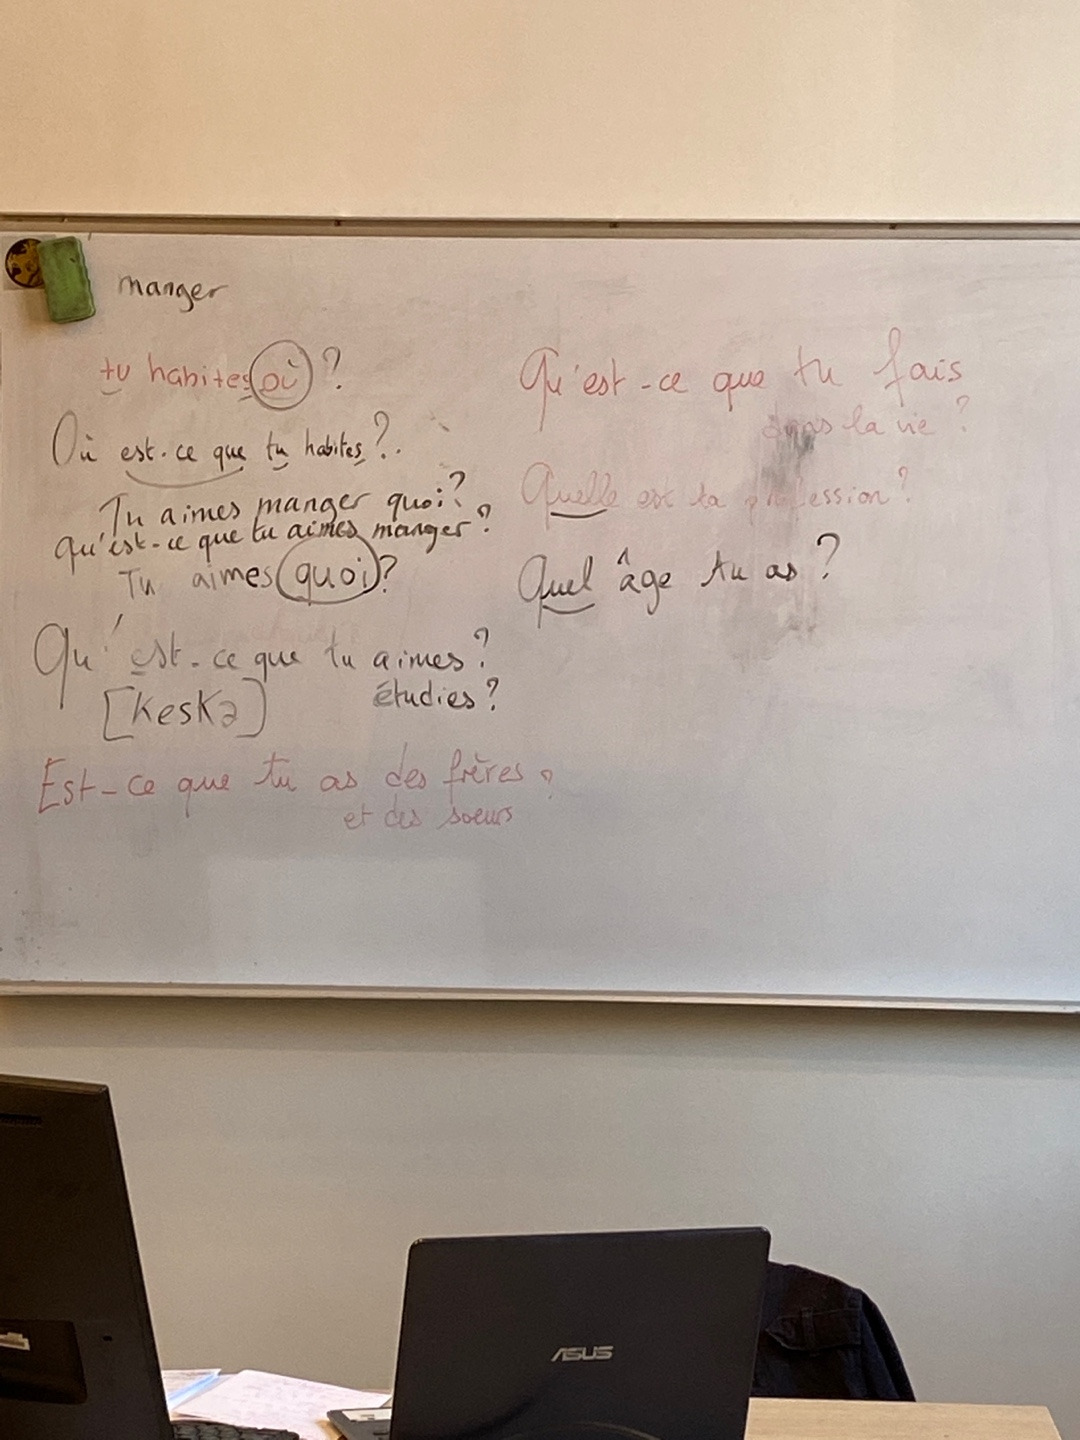 manger
tu habites où ?
Où est-ce que tu habites ?
Tu aimes manger quoi ?
qu'est-ce que tu aimes manger ?
Tu aimes quoi ?
Qu'est-ce que tu aimes ?
étudies ?
[keskə]
Est-ce que tu as des frères ?
et des soeurs
Qu'est-ce que tu fais
dans la vie ?
Quelle est ta profession ?
Quel âge tu as ?
ASUS